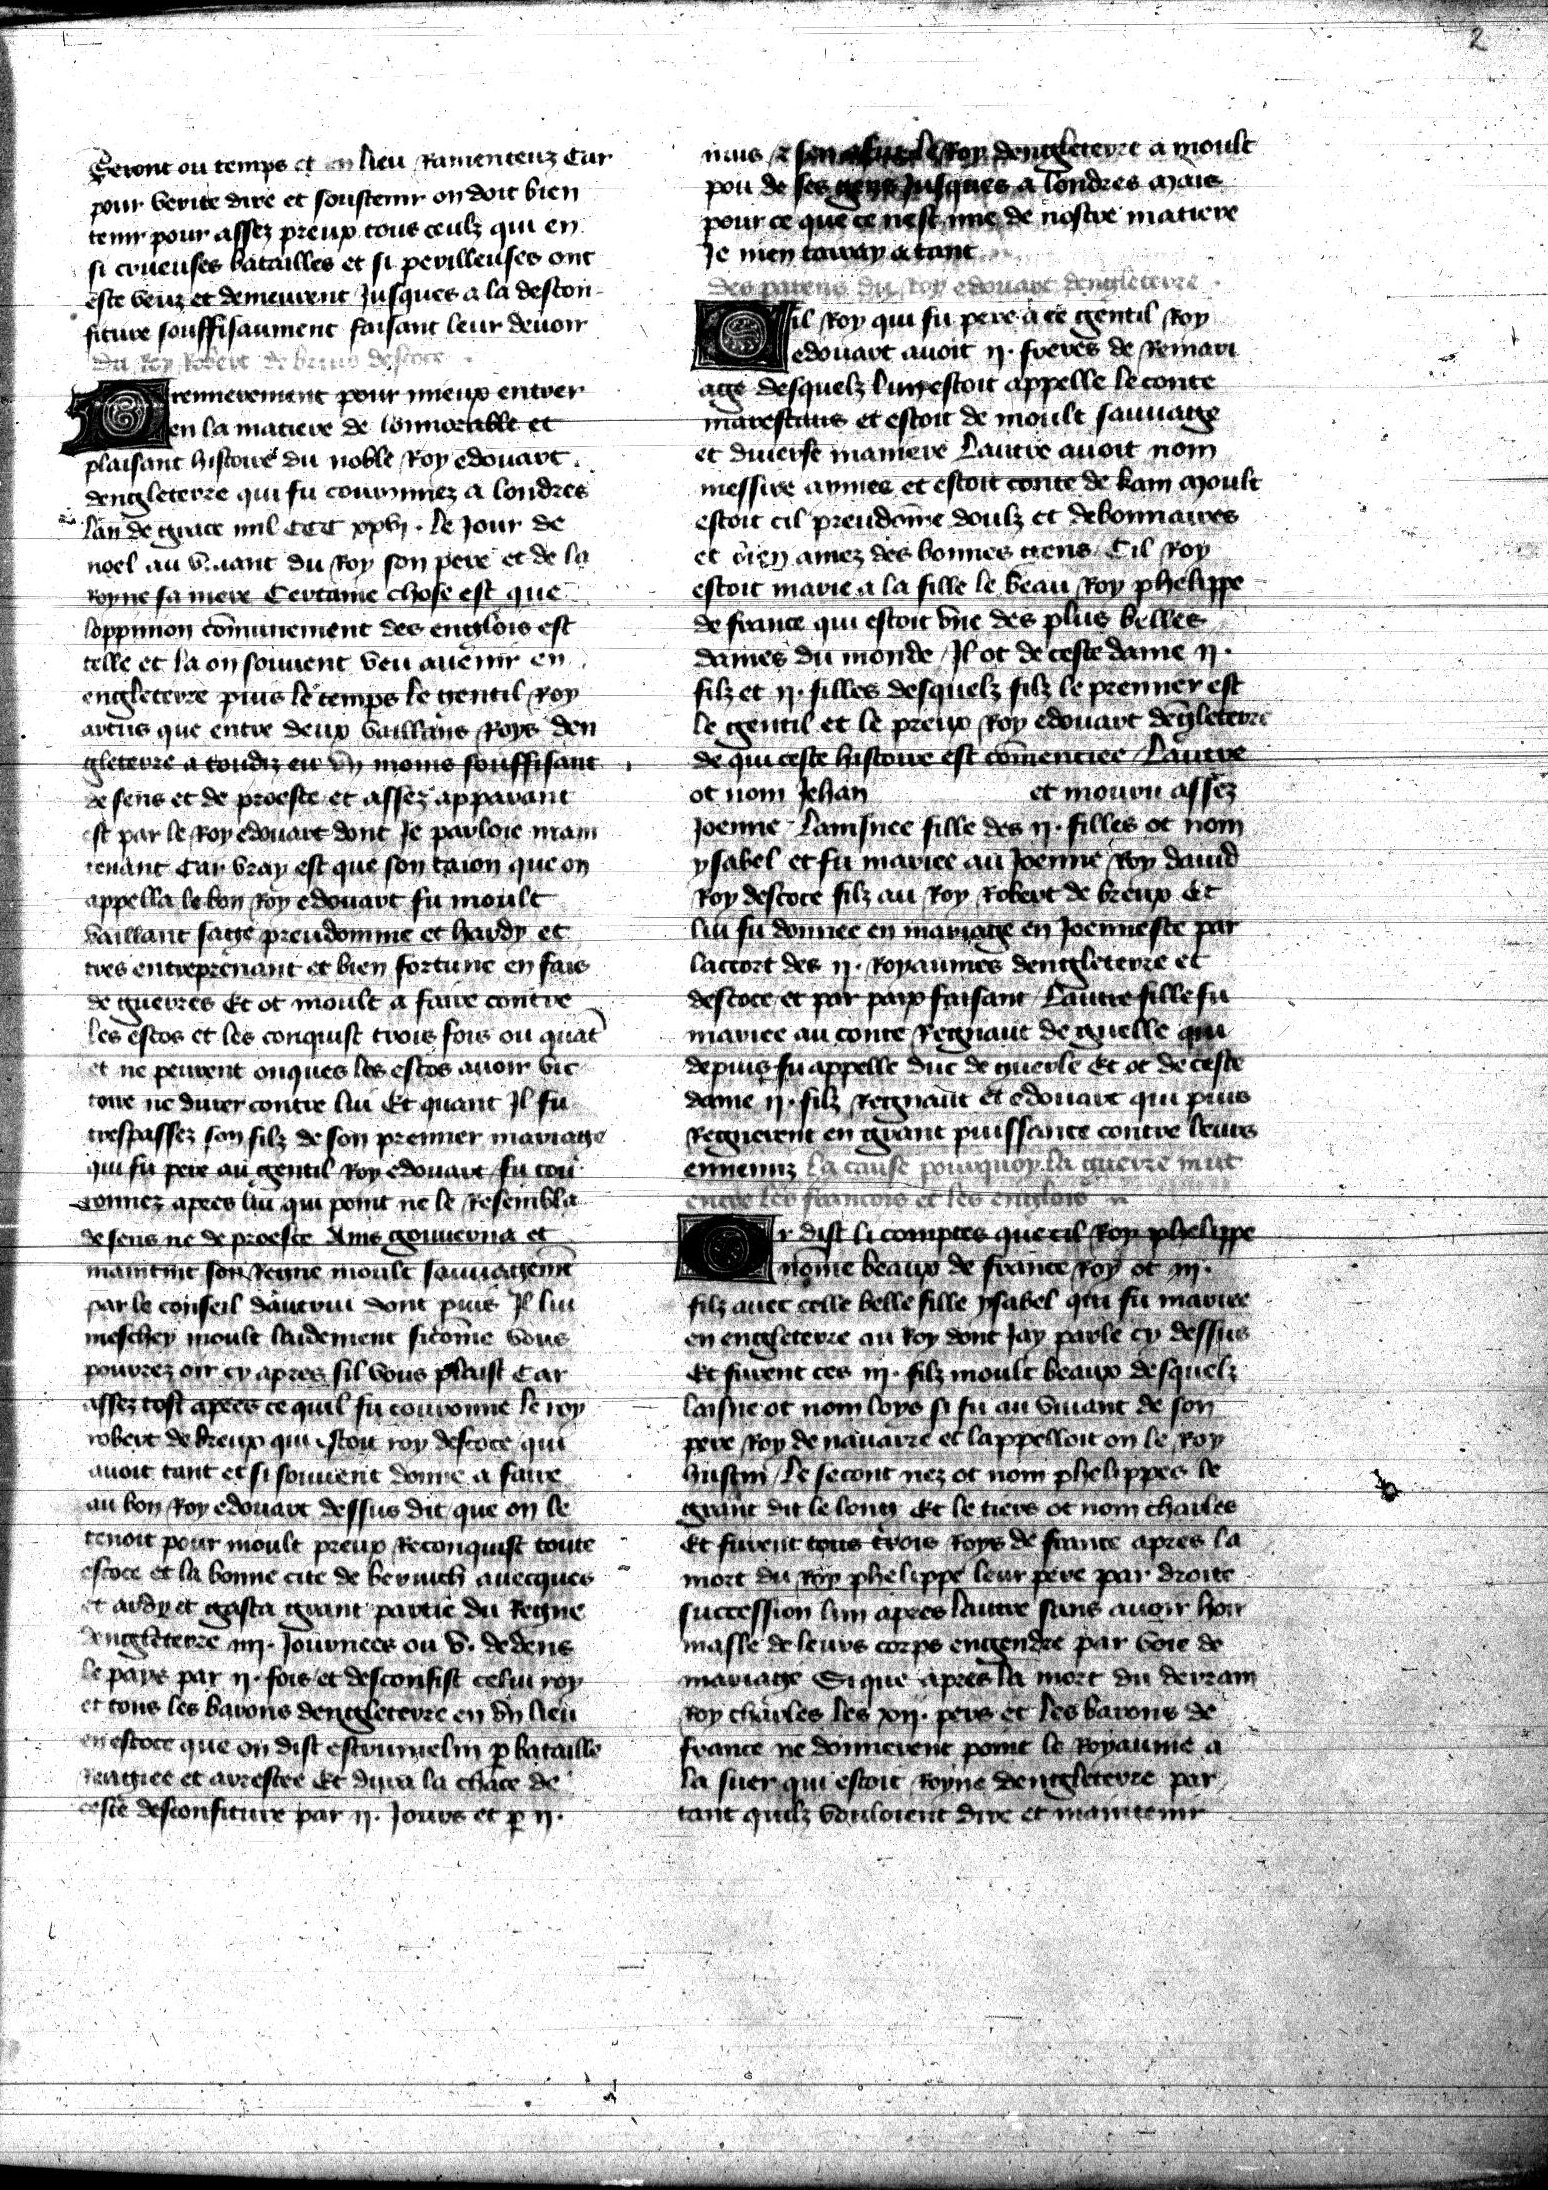 2
Seront ou temps et en lieu Ramenteuz Car
pour verite dire et soustenir on doit bien
tenir pour assez preux tous ceulz qui en
si crueuses batailles et si perilleuses ont
este veuz et demeurent Jusques a la descon-
fiture souffisaument faisant leur devoir
du Roy Robert de brus descoce
Premierement pour mieux entrer
en la matiere de lonnorable et
plaisant histoire du noble Roy edouart
dengleterre qui fu couronnez a londres
lan de grace mil CCC xxvj. le Jour de
noel au vivant du Roy son pere et de la
Royne sa mere Certaine chose est que
loppinion cōmunement des englois est
telle et la on souvent veu avenir en
engleterre puis le temps le gentil Roy
artus que entre deux vaillans Roys den
gleterre a toudiz eu vn moins souffisant
de sens et de proesce et assez apparant
est par le Roy edouart dont Je parloie main
tenant Car vray est que son taion que on
appella le bon Roy edouart fu moult
vaillant sage preudomme et hardy et
tres entreprenant et bien fortune en fais
de guerres Et ot moult a faire contre
les escos et les conquist trois fois ou quat̄
et ne peurent onques les escos avoir vic
toire ne durer contre lui Et quant Jl fu
trespassez son filz de son premier mariage
qui fu pere au gentil Roy edouart fu cou
ronnez apres lui qui point ne le Resembla
de sens ne de proesce Ains gouverna et
maintint son Regne moult sauvagemēt
par le conseil dautrui dont puis Jl lui
meschey moult laidement sicōme vous
pourrez oir cy apres sil vous plaist Car
assez tost apres ce quil fu couronne le roy
robert de breux qui estoit roy descoce qui
avoit tant et si souvent donne a faire
au bon Roy edouart dessus dit que on le
tenoit pour moult preux Reconquist toute
escoce et la bonne cite de bervich avecques
et ardy et gasta grant partie du Regne
dengleterre iiij. Journees ou v. dedens
le pays par ij. fois et desconfist celui roy
et tous les barons dengleterre en vn lieu
en escoce que on dist estrumelin p bataille
rengiee et arrestee Et dura la chace de
ceste desconfiture par ij. Jours et p ij.
nuis le Roy dengleterre a moult
pou de ses gens Jusques a londres Mais
pour ce que ce nest mie de nostre matiere
Je men tairay a tant
des parens du Roy edouart dengleterre
Cil Roy qui fu pere a ce gentil Roy
edouart avoit ij. freres de Remari
age desquelz lun estoit appelle le conte
mareschaus et estoit de moult sauvage
et diverse maniere Lautre avoit nom
messire aymes et estoit conte de kain Moult
estoit cil preudōme doulz et debonnaires
et bien amez des bonnes gens Cil Roy
estoit marie a la fille le beau Roy phelippe
de france qui estoit vne des plus belles
dames du monde Jl ot de ceste dame ij.
filz et ij. filles desquelz filz le premier est
le gentil et le preux Roy edouart dēgleterre
de qui ceste histoire est cōmenciee Lautre
ot nom Jehan et mouru assez
Joenne Lainsnee fille des ij. filles ot nom
ysabel et fu mariee au Joenne Roy david
Roy descoce filz au Roy Robert de breux Et
lui fu donnee en mariage en Joennesce par
laccort des ij. Royaumes dengleterre et
descoce et par paix faisant Lautre fille fu
mariee au conte Regnaut de guelle qui
depuis fu appelle duc de guerle Et ot de ceste
dame ij. filz Regnaut et edouart qui puis
Regnerent en grant puissance contre leurs
ennemiz La cause pourquoy la guerre mut
entre les francois et les englois
Or dist li comptes que cil Roy phelippe
nōme beaux de france Roy ot iij.
filz avec celle belle fille ysabel qui fu mariee
en engleterre au Roy dont Jay parle cy dessus
Et furent ces iij. filz moult beaux desquelz
laisne ot nom loys si fu au vivant de son
pere Roy de navarre et lappelloit on le Roy
hustin Le secont nez ot nom phelippes le
grant dit le long Et le tiers ot nom charles
Et furent tous trois Roys de france apres la
mort du Roy phelippe leur pere par droite
succession lun apres lautre sans avoir hoir
masle de leurs corps engendre par voie de
mariage Si que apres la mort du derrain
Roy charles les xij. pers et les barons de
france ne donnerent point le Royaume a
la suer qui estoit Royne dengleterre par
tant quilz vouloient dire et maintenir